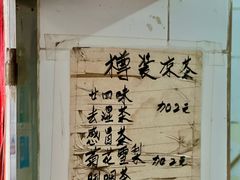 樽裝凉茶
廿四味
去湿茶 加2元
感冒茶
菊花雪梨 加2元